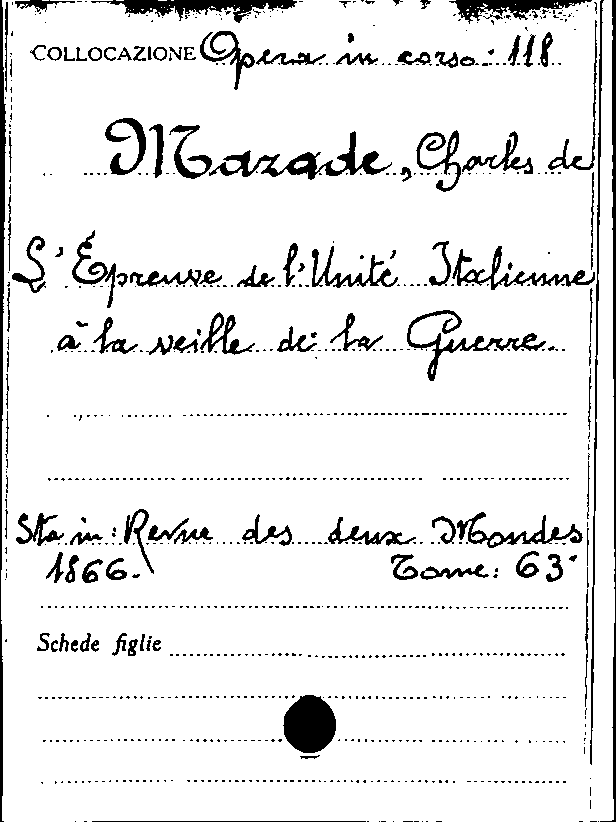 COLLOCAZIONE Opera in corso: 118
Mazade, Charles de
L'Épreuve de l'Unité Italienne
à la veille de la Guerre.
Sta in: Revue des deux Mondes
1866. Tome: 63°
Schede figlie